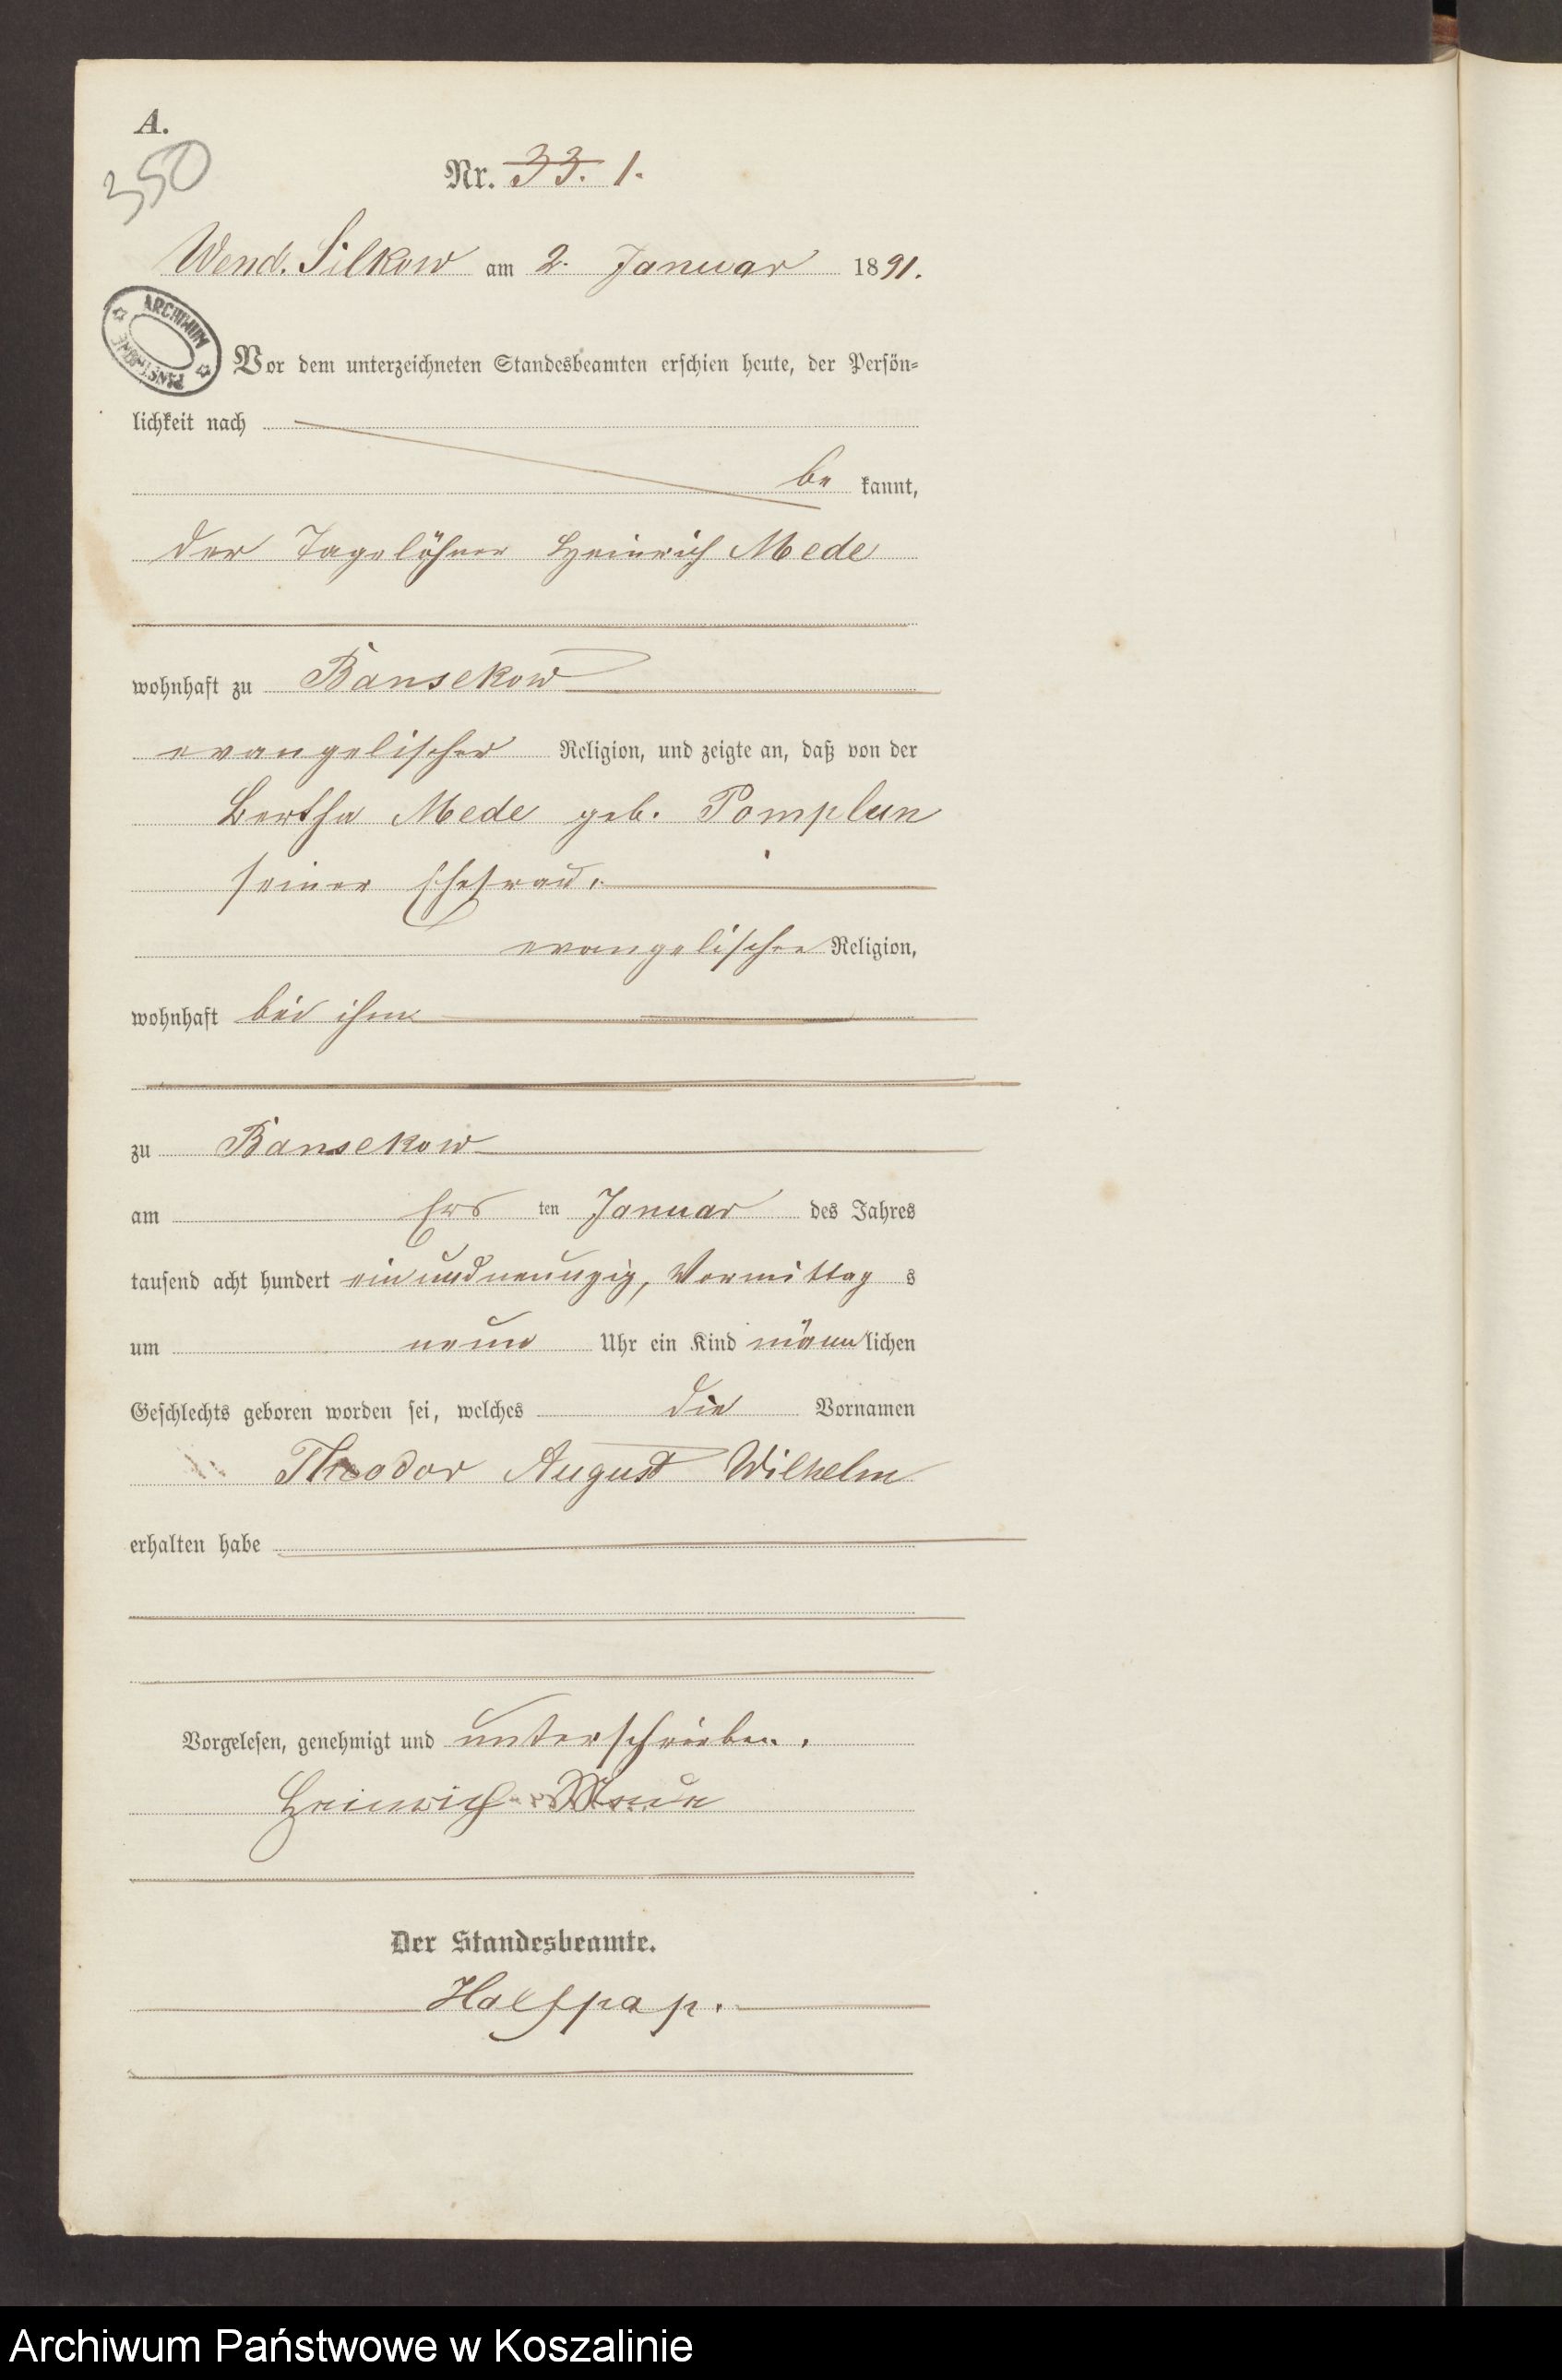 A.
350
Nr. 33. 1.
Wend. Silkow am 2. Januar 1891.
ARCHIWUM PAŃSTWOWE
Vor dem unterzeichneten Standesbeamten erschien heute, der Persön-
lichkeit nach
be kannt,
der Tagelöhner Heinrich Mede
wohnhaft zu Bansekow
evangelischer Religion, und zeigte an, daß von der
Bertha Mede geb. Pomplun
seiner Ehefrau,
evangelischer Religion,
wohnhaft bei ihm
zu Bansekow
am Ers ten Januar des Jahres
tausend acht hundert ein und neunzig, Vormittag s
um neun Uhr ein Kind männlichen
Geschlechts geboren worden sei, welches die Vornamen
Theodor August Wilhelm
erhalten habe
Vorgelesen, genehmigt und unterschrieben.
Heinrich
Der Standesbeamte.
Halfpap.
Archiwum Państwowe w Koszalinie